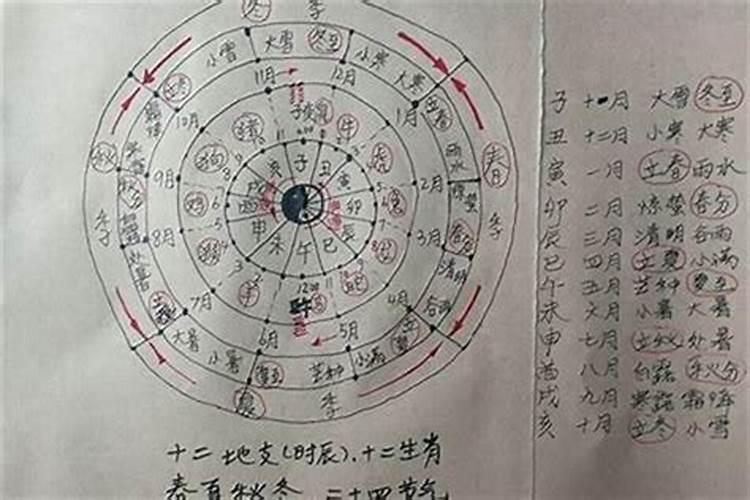 冬 季
小雪 大雪 冬至 小寒 大寒
立冬 11月 12月 立春
10月 1月
子 丑 寅 卯 辰 巳 午 未 申 酉 戌 亥
秋 季
9月 2月 雨水 惊蛰
春 季
秋分 8月 3月 春分 清明
处暑 7月 4月 谷雨
6月 5月
大暑 小暑 夏至 芒种 小满
夏 季
子 十一月 大雪 冬至
丑 十二月 小寒 大寒
寅 一月 立春 雨水
卯 二月 惊蛰 春分
辰 三月 清明 谷雨
巳 四月 立夏 小满
午 五月 芒种 夏至
未 六月 小暑 大暑
申 七月 立秋 处暑
酉 八月 白露 秋分
戌 九月 寒露 霜降
亥 十月 立冬 小雪
十二地支(时辰)、十二生肖
春夏秋冬 二十四节气